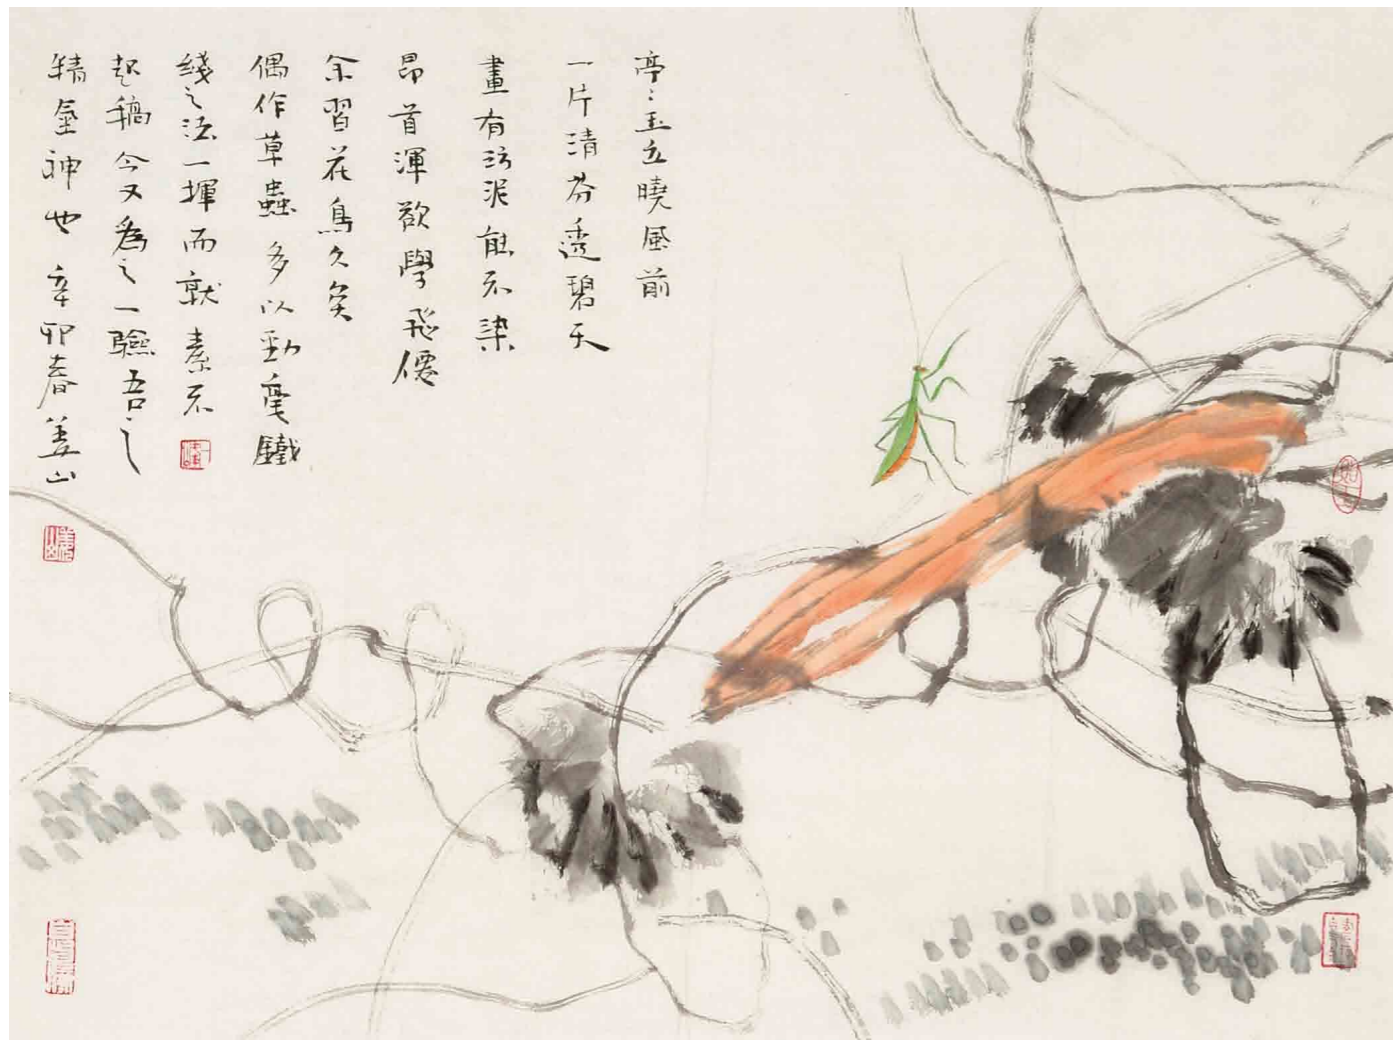 亭〻玉立曉風前
一片清芬透碧天
畫有污泥能不染
昂首渾欲學飛僊
余習花鳥久矣
偶作草蟲多以勁毫鐵
綫之法一揮而就素不
起稿今又為之一驗吾之
精氣神也辛卯春山